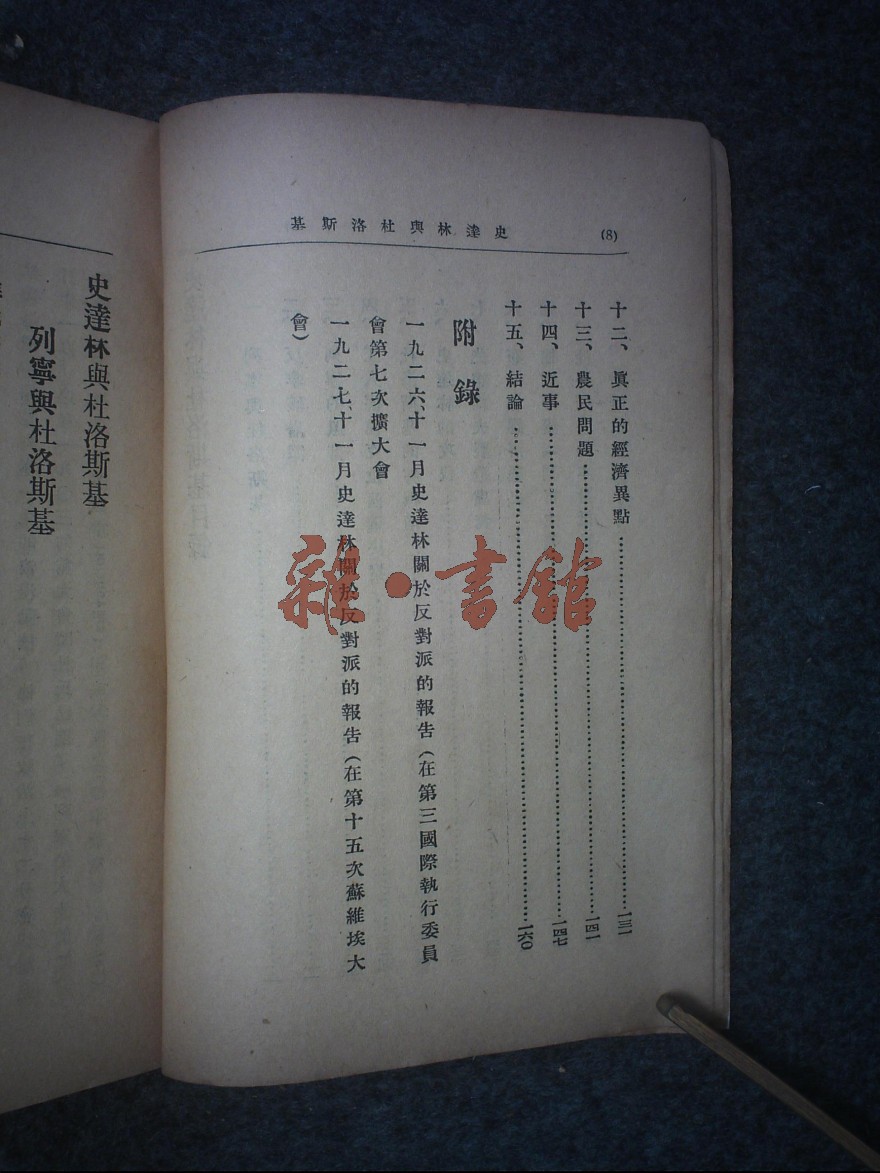 史達林與杜洛斯基
(8)
十二、眞正的經濟異點……一三一
十三、農民問題……一四一
十四、近事……一四七
十五、結論……一六〇
附錄
一九二六、十一月史達林關於反對派的報告(在第三國際執行委員
會第七次擴大會
一九二七、十一月史達林關於反對派的報告(在第十五次蘇維埃大
會)
史達林與杜洛斯基
列寧與杜洛斯基
雜·書館